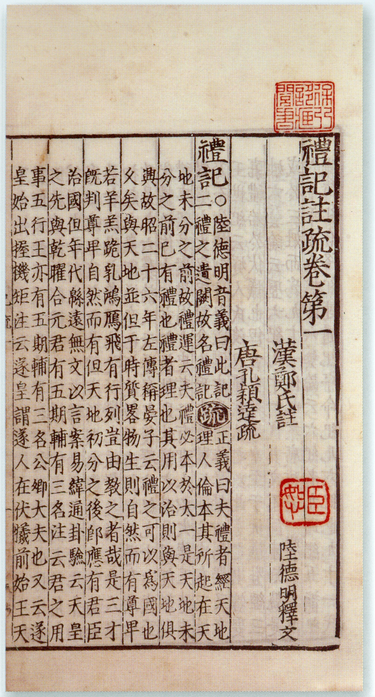 禮記註疏卷第一
漢鄭氏註
唐孔穎達疏
陸德明釋文
禮記○陸德明音義曰此記
二禮之遺闕故名禮記
疏正義曰夫禮者經天地
理人倫本其所起在天
地未分之前故禮運云夫禮必本於大一是天地未
分之前已有禮也禮者理也其用以治則與天地俱
興故昭二十六年左傳稱晏子云禮之可以爲國也
久矣與天地並但于時質畧物生則自然而有尊卑
若羊羔跪乳鴻鴈飛有行列豈由教之者哉是三才
旣判尊卑自然而有但天地初分之後卽應有君臣
治國但年代緜遠無文以言案易緯通卦驗云天皇
之先與乾曜合元君有五期輔有三名注云君之用
事五行王亦有五期輔有三名公卿大夫也又云遂
皇始出握機矩注云遂皇謂遂人在伏犧前始王天